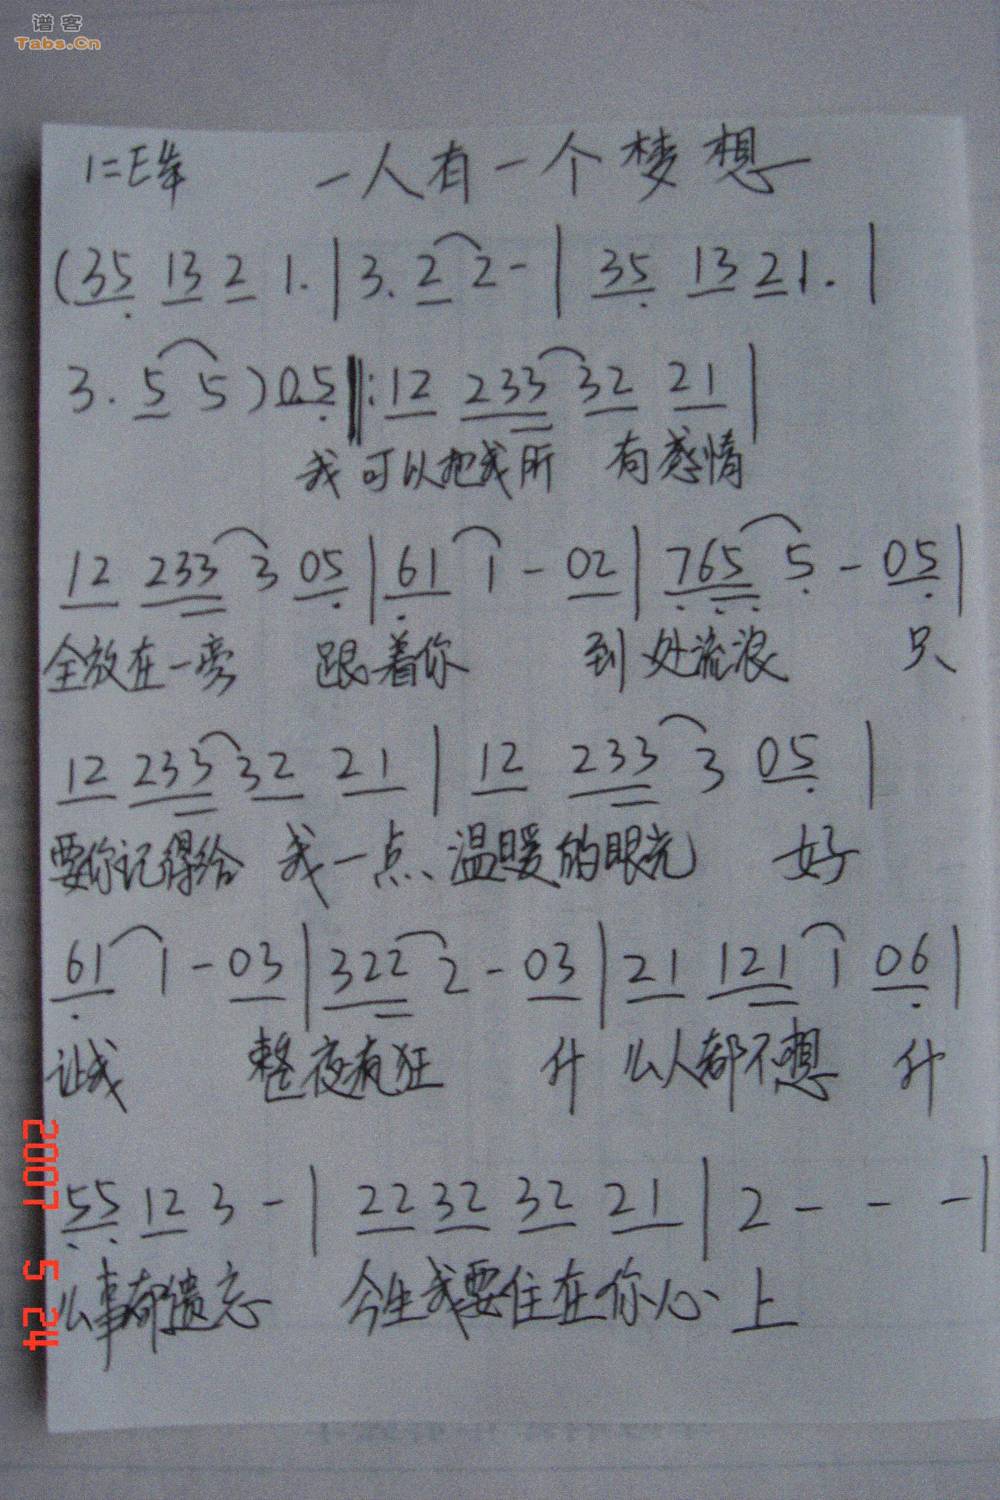 谱客
Tabs.Cn
1=E 4/4 一人有一个梦想
(35 13 2 1. | 3. 2 2 - | 35 13 2 1. |
3. 5 5 ) 0.5 ‖: 12 233 32 21 |
我 可以把我所 有感情
12 233 3 05 | 61 1 - 02 | 765 5 - 05 |
全放在一旁 跟着你 到处流浪 只
12 233 32 21 | 12 233 3 05 |
要你记得给 我一点 温暖的眼光 好
61 1 - 03 | 322 2 - 03 | 21 121 1 06 |
让我 整夜疯狂 什 么人都不想 什
55 12 3 - | 22 32 32 21 | 2 - - - |
么事都遗忘 今生我要住在你心上
2007 5 24